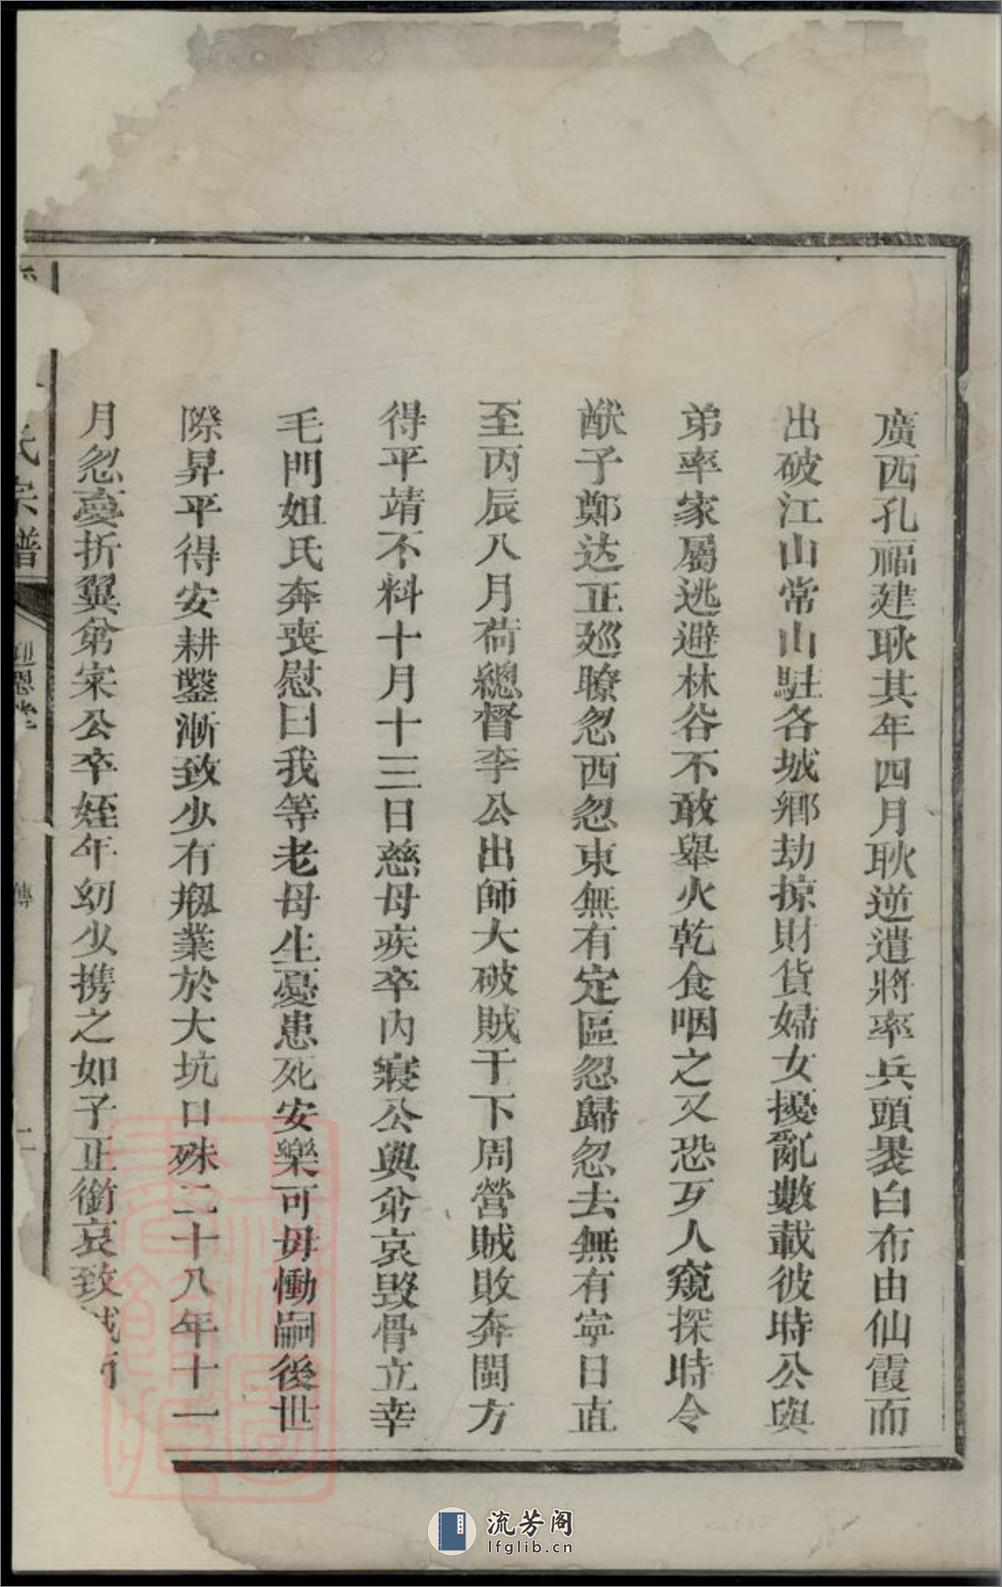 廣西孔福建耿其年四月耿逆遣將率兵頭裹白布由仙霞而
出破江山常山駐各城鄉劫掠財貨婦女擾亂數載彼時公與
弟率家屬逃避林谷不敢舉火乾食咽之又恐歹人窺探時令
猷子鄭达正廵瞭忽西忽東無有定區忽歸忽去無有寧日直
至丙辰八月荷總督李公出師大破賊于下周營賊敗奔閩方
得平靖不料十月十三日慈母疾卒內寢公與弟哀毀骨立幸
毛門姐氏奔喪慰曰我等老母生憂患死安樂可毋慟嗣後世
際昇平得安耕鑿漸致少有剏業於大坑口殊二十八年十一
月忽憂折翼弟宷公卒姪年幼少携之如子正銜哀致
氏宗譜
傳
二
流芳阁
lfglib.cn